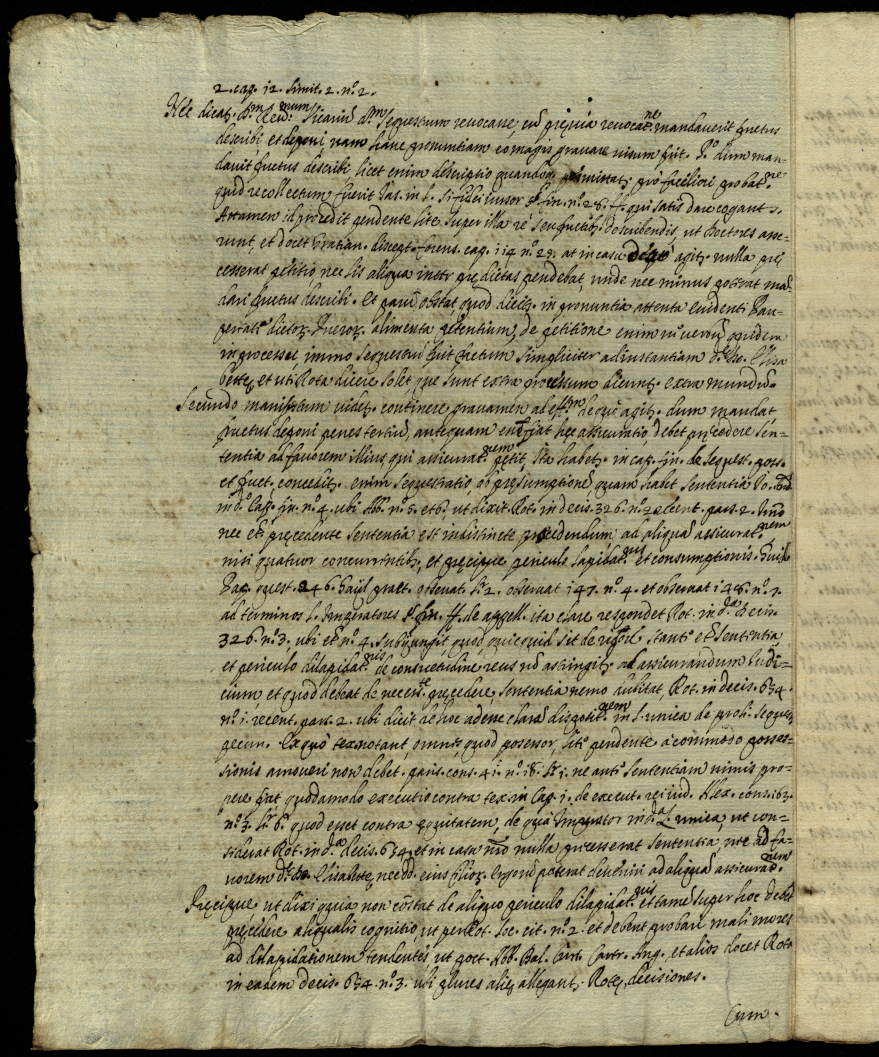 2. cap. 12. limit. 2. n.º 2.
Nec dicat. D.m Reu.mum Vicariũ d.m sequestrum reuocasse, cũ p̃uia reuocat.ne mandauerit fructus
describi, et deponi, nam hanc pronuntiam eo magis grauare uisum fuit. P.º dum man-
dauit fructus describi, licet enim descriptio quandoq. permittat. pro faciliori probat.ne
quid recollectum fuerit Ias. in l. si fideiussor §. fin. n.º 28. ff. qui satis dare cogant.
Attamen id procedit pendente lite super illa re seu fructib. describendis, ut Doctores asse-
runt, et docet Gratian. discept. forens. cap. 114 n.º 29. at in casu de quo agit. nulla prę
cesserat petitio nec lis aliqua inter prędictas pendebat, unde nec minus poterat man-
dari fructus describi. Et parũ obstat, quod dicit. in pronuntia attenta euidenti Pau-
pertate dictor. Pueror. alimenta petentium, de petitione enim nĩ uerbũ quidem
in processu immo sequestrũ fuit factum simpliciter ad instantiam d.
bettę, et uti Rota dicere solet que sunt extra processum dicunt. extra mundũ.
Secundo manifestum uidet. continere grauamen ad eff.m de quo agit. dum mandat
fructus deponi penes tertiũ, antequam enim fiat hec assecuratio debet pręcedere Sen-
tentia ad fauorem illius qui assicurat.nem petit, Ita habet. in cap. fin. de sequest. poss.
et fruct. concedit. enim sequestratio, ob pręsumptionẽ quam habet sententia
in d.º Cap. fin. n.º 4. ubi Abb. n.º 5. et 6. ut dixit Rot. in decis. 326. n.º 2. recent. par. 2. Imo
nec et. pręcedente sententia est indistincte procedendum ad aliquã assicurat.nem
nisi quatuor concurrentib., et pręcipue periculo lapidat.nis et consumptionis. Guid.
Pap. quest. 246. obseruat. 147. n.º 4. et obseruat. 148. n.º 1.
ad terminos l. Imperatores §. fin. ff. de appell. ita clare respondet Rot. in d.ª Decis.
326. n.º 3., ubi et n.º 4. subijungit, quod quicquid sit de rigore, stante et. Sententia
et periculo dilapidat.nis de consuetudine reus nõ astringit. ad assicurandum Iudi-
cium et quod debeat de necess.te pręcedere, sententia nemo dubitat, Rot. in decis. 654.
n.º 1. recent. par. 2. ubi dicit de hoc adesse clarã disposit.nem in l. unica de proh. sequest.
pecun. Ex quo tex. notant, omnes, quod possessor, lite pendente a commodo posses-
sionis amoueri non debet. paris. cons. 41. n.º 18. ne ante Sententiam nimis pro-
pere fiat quodammodo executio contra tex. in Cap. 1. de execut. rei iud. Alex. cons. 163.
n.º 3. lib. 6. quod esset contra ęquitatem, de qua Imperator in d.ª L. unica, ut con-
siderat Rot. in d.ª decis. 654. et in casu nr̃o nulla pręcesserat sententia nec ad fa-
uorem Elisabettę, nec dd. eius filior. Ergo nõ poterat deueniri ad aliquã assicurat.nem
Pręcipue ut dixi quia non cõstat de aliquo periculo dilapidat.nis et tamẽ super hoc debet
pręcedere aliqualis cognitio, ut per Rot. loc. cit. n.º 2. et debent probari mali mores
ad dilapidationem tendentes ut post Abb. Bal. Card. Castr. Ang. et alios docet Rota
in eadem decis. 654. n.º 3. ubi plures alię allegant. Rotę decisiones.
Cum